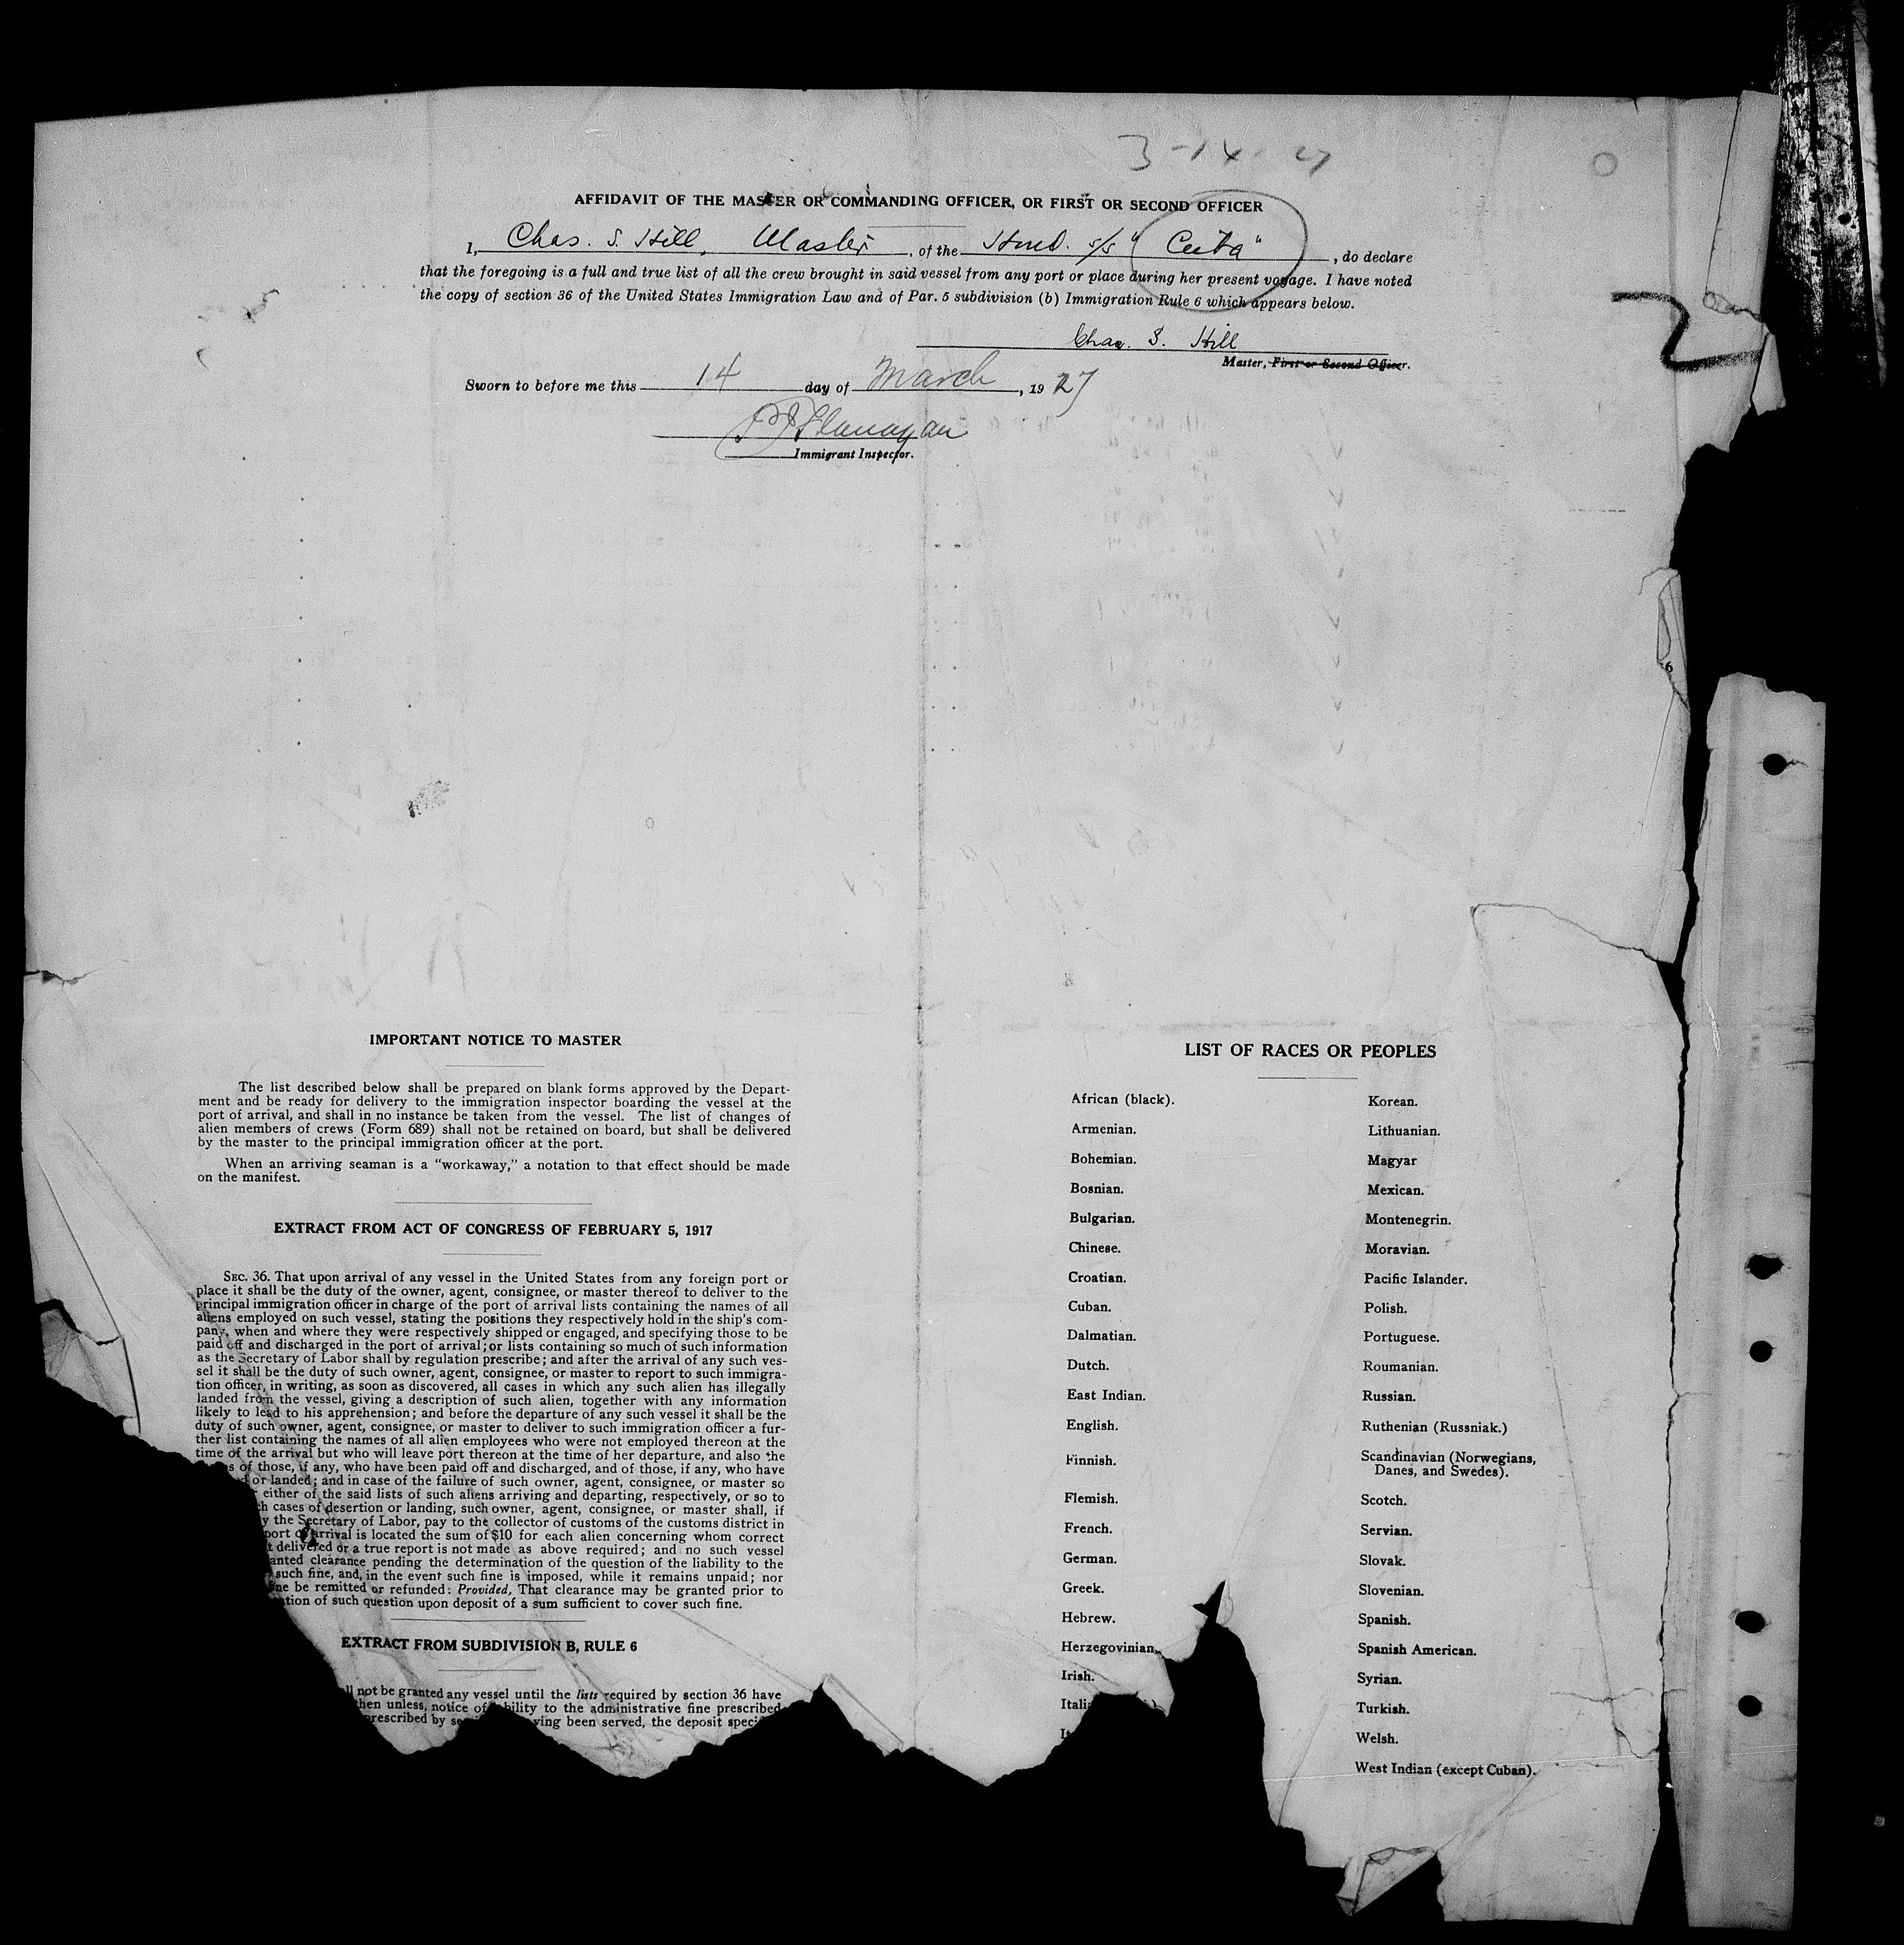 3-14-27
AFFIDAVIT OF THE MASTER OR COMMANDING OFFICER, OR FIRST OR SECOND OFFICER
I, Chas. S. Hill, Master, of the Hond. s/s "Ceiba", do declare
that the foregoing is a full and true list of all the crew brought in said vessel from any port or place during her present voyage. I have noted
the copy of section 36 of the United States Immigration Law and of Par. 5 subdivision (b) Immigration Rule 6 which appears below.
Chas. S. Hill
Master, First or Second Officer.
Sworn to before me this 14 day of March, 1927
Flanagan
Immigrant Inspector.
2
6
IMPORTANT NOTICE TO MASTER
The list described below shall be prepared on blank forms approved by the Depart-
ment and be ready for delivery to the immigration inspector boarding the vessel at the
port of arrival, and shall in no instance be taken from the vessel. The list of changes of
alien members of crews (Form 689) shall not be retained on board, but shall be delivered
by the master to the principal immigration officer at the port.
When an arriving seaman is a "workaway," a notation to that effect should be made
on the manifest.
EXTRACT FROM ACT OF CONGRESS OF FEBRUARY 5, 1917
SEC. 36. That upon arrival of any vessel in the United States from any foreign port or
place it shall be the duty of the owner, agent, consignee, or master thereof to deliver to the
principal immigration officer in charge of the port of arrival lists containing the names of all
aliens employed on such vessel, stating the positions they respectively hold in the ship's com-
pany, when and where they were respectively shipped or engaged, and specifying those to be
paid off and discharged in the port of arrival; or lists containing so much of such information
as the Secretary of Labor shall by regulation prescribe; and after the arrival of any such ves-
sel it shall be the duty of such owner, agent, consignee, or master to report to such immigra-
tion officer, in writing, as soon as discovered, all cases in which any such alien has illegally
landed from the vessel, giving a description of such alien, together with any information
likely to lead to his apprehension; and before the departure of any such vessel it shall be the
duty of such owner, agent, consignee, or master to deliver to such immigration officer a fur-
ther list containing the names of all alien employees who were not employed thereon at the
time of the arrival but who will leave port thereon at the time of her departure, and also the
of those, if any, who have been paid off and discharged, and of those, if any, who have
or landed; and in case of the failure of such owner, agent, consignee, or master so
either of the said lists of such aliens arriving and departing, respectively, or so to
cases of desertion or landing, such owner, agent, consignee, or master shall, if
the Secretary of Labor, pay to the collector of customs of the customs district in
port of arrival is located the sum of $10 for each alien concerning whom correct
delivered or a true report is not made as above required; and no such vessel
clearance pending the determination of the question of the liability to the
such fine, and, in the event such fine is imposed, while it remains unpaid; nor
be remitted or refunded: Provided, That clearance may be granted prior to
of such question upon deposit of a sum sufficient to cover such fine.
EXTRACT FROM SUBDIVISION B, RULE 6
not be granted any vessel until the lists required by section 36 have
then unless, notice of to the administrative fine prescribed
prescribed by having been served, the deposit
LIST OF RACES OR PEOPLES
African (black).
Armenian.
Bohemian.
Bosnian.
Bulgarian.
Chinese.
Croatian.
Cuban.
Dalmatian.
Dutch.
East Indian.
English.
Finnish.
Flemish.
French.
German.
Greek.
Hebrew.
Herzegovinian.
Irish.
Korean.
Lithuanian.
Magyar
Mexican.
Montenegrin.
Moravian.
Pacific Islander.
Polish.
Portuguese.
Roumanian.
Russian.
Ruthenian (Russniak.)
Scandinavian (Norwegians,
Danes, and Swedes).
Scotch.
Servian.
Slovak.
Slovenian.
Spanish.
Spanish American.
Syrian.
Turkish.
Welsh.
West Indian (except Cuban).